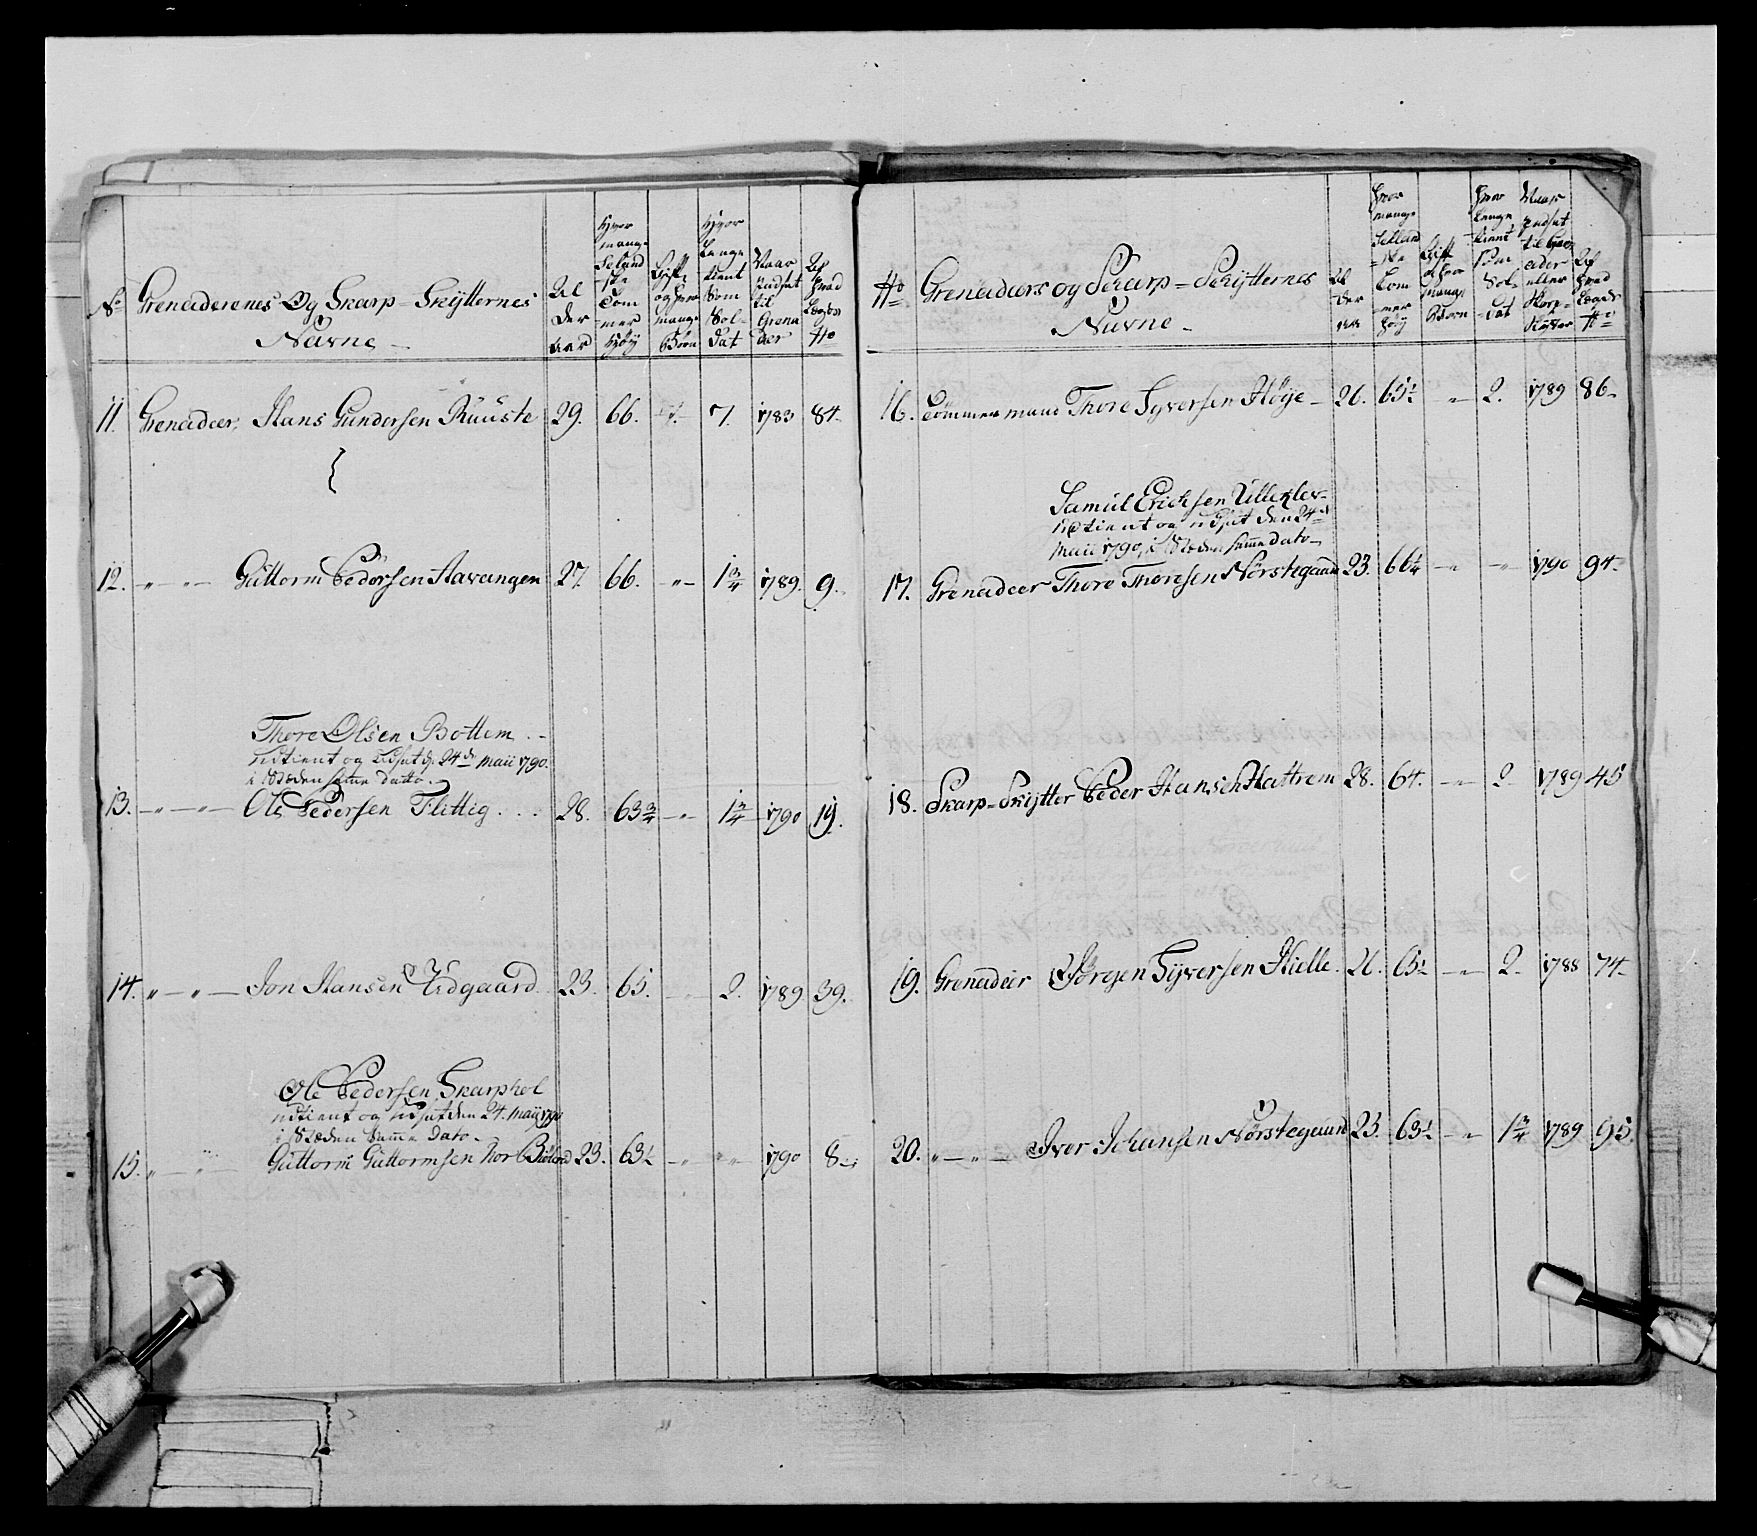 No
Grenaderenes Og Skarp-Skÿtternes
Navne
Al
der
aar
Hvor
mange
Seland
ske
Tom
mer
Høÿ
Gift
og hvor
mange
Børn
Hvor
Længe
tient
Som
Sol-
dat
Naar
Indsat
til
Grena
deer
Af
hvad
Lægds
No
11. Grenadeer, Hans Gundersen Ruuste 29. 66. 7. 1783 84.
12. " — " — Guttorm Pedersen Havangen 27. 66. — " — 1 3/4 1789. 9.
Thore Olsen Bottem
udtient og udsat d. 24de Maii 1790.
i Stæden samme datto.
13. — " — " — Ole Pedersen Flittig . . . 28. 63 3/4 — " — 1 3/4 1790 19.
14. " — " — Jon Hansen Vidgaard 23. 65. 2. 1789 39.
Ole Pedersen Skarphol
udtient og udsat den 24. Maÿ 1790
i Stæden samme dato.
15. " — " Guttorm Guttormsen Nor 23. 63 1/2 — " — " " 1790 8.
No
Grenadeers og Skarp-Skÿtternes
Navne
Al
der
aar
Hvor
mange
Seland
ske
Tom
mer
høÿ
Gift
og hvor
mange
Børn
Hvor
længe
tient
som
Sol-
dat
Naar
Indsat
til Gren
adeer
eller
Skarp-
Skÿtter
Af
hvad
Lægds
No
16. Tømmermand Thore Syversen Høÿe 26. 65 1/2 " 2. 1789 86
Samuel Erichsen Ulleklev
udtient og udsat den 24de
Maii 1790, i Stæden samme dato
17. Grenadeer Thore Thoresen Nørstegaard 23. 66 1/4 — " — " 1790 94
18. Skarp-Skÿtter Peder Hansen Hattrem 28. 64. — " — 2 1789 45
19. Grenadeer Jørgen Syversen Hielle 26. 63 1/2 — " — 2. 1788 74
20. " — " — Iver Johansen Nørstegaard 23. 63 1/2 — " 1 3/4 1789 95.